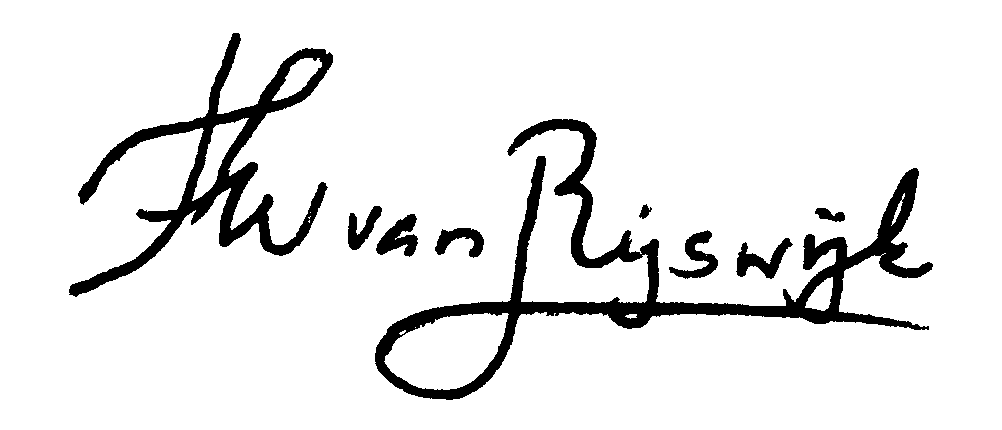 FHW van Rijswijk